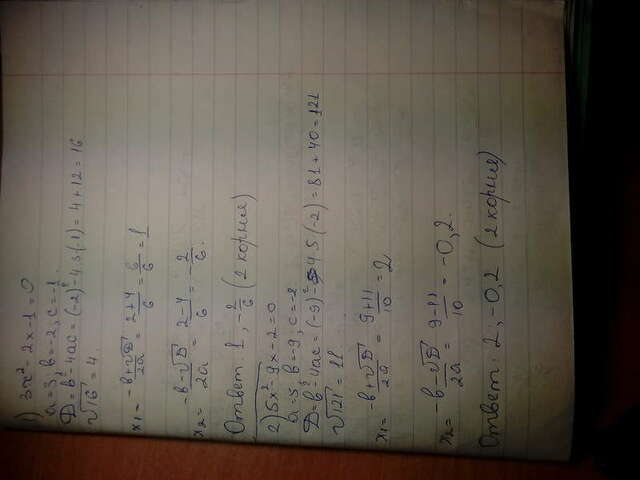 1) 3x² - 2x - 1 = 0
a = 3, b = -2, c = -1.
D = b² - 4ac = (-2)² - 4·3(-1) = 4 + 12 = 16
√16 = 4.
x₁ = -b+√D/2a = 2+4/6 = 6/6 = 1
x₂ = -b-√D/2a = 2-4/6 = -2/6.
Ответ: 1, -2/6 (2 корня)
2) 5x² - 9x - 2 = 0
a = 5, b = -9, c = -2
D = b² - 4ac = (-9)² - 4·5(-2) = 81 + 40 = 121
√121 = 11
x₁ = -b+√D/2a = 9+11/10 = 2
x₂ = -b-√D/2a = 9-11/10 = -0,2.
Ответ: 2, -0,2 (2 корня)